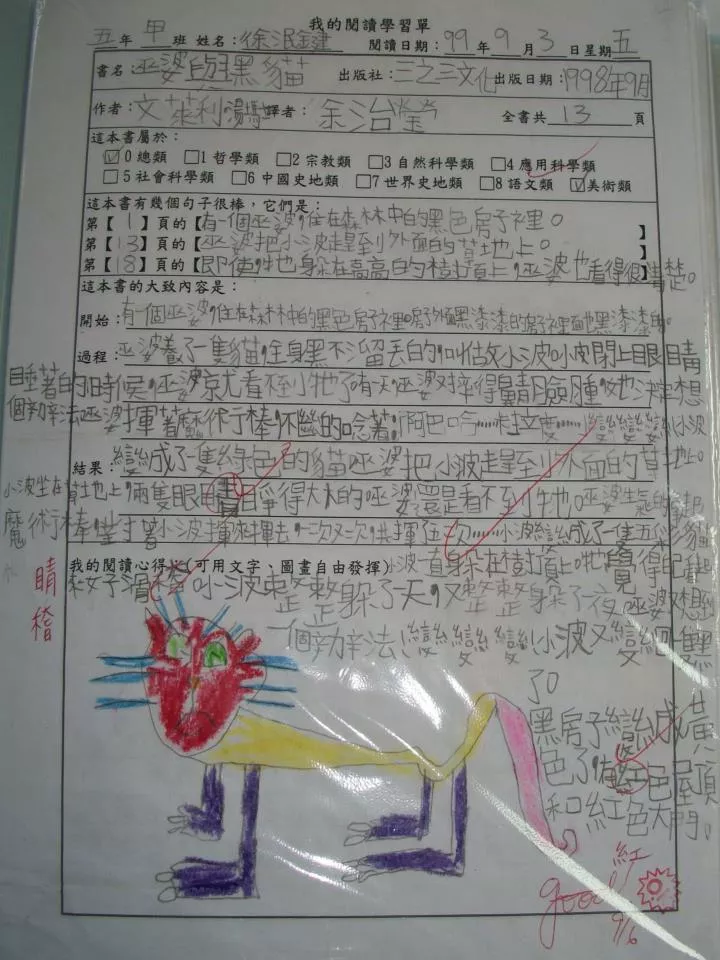 我的閱讀學習單
五年 甲 班 姓名:徐泯鍵 閱讀日期:99年9月3日星期五
書名:巫婆與黑貓 出版社:三之三文化 出版日期:1998年9月
作者:文萊利湯瑪士 譯者:余治瑩 全書共 13 頁
這本書屬於:
☑0 總類 □1 哲學類 □2 宗教類 □3 自然科學類 □4 應用科學類
□5 社會科學類 □6 中國史地類 □7 世界史地類 □8 語文類 ☑美術類
這本書有幾個句子很棒,它們是:
第【1】頁的【有一個巫婆,住在森林中的黑色房子裡。】
第【13】頁的【巫婆把小波趕到外面的草地上。】
第【18】頁的【即使牠躲在高高的樹頂上,巫婆也看得很清楚。】
這本書的大致內容是:
開始:有一個巫婆,住在森林中的黑色房子裡。房外黑漆漆的房子裡面也黑漆漆的。
過程:巫婆養了一隻貓,全身黑不溜丟的,叫做小波,小波閉上眼睛
睡著的時候,巫婆就看不到牠了有天,巫婆又摔得鼻青臉腫,她決定想
個辦法巫婆揮著魔術棒,不斷的唸著:阿巴吟……卡拉變……!變變變小波
結果:變成了一隻綠色的貓巫婆把小波趕到外面的草地上。
小波坐在草地上,兩隻眼睛睜得大大的巫婆還是看不到牠。巫婆生氣的
魔術棒,對著小波揮來揮去,一次又一次,共揮五次……小波變成了一隻五彩貓
我的閱讀心得:(可用文字、圖畫自由發揮)小波一直躲在樹頂上,牠覺得自己看起
來好滑稽。小波整整躲了一天,又整整躲了一夜,巫婆又想到
一個辦法!變變變!小波又變回黑
了。
黑房子變成黃
色了,有紅色屋頂
和紅色大門。
睛
稽
紅
good
9/6